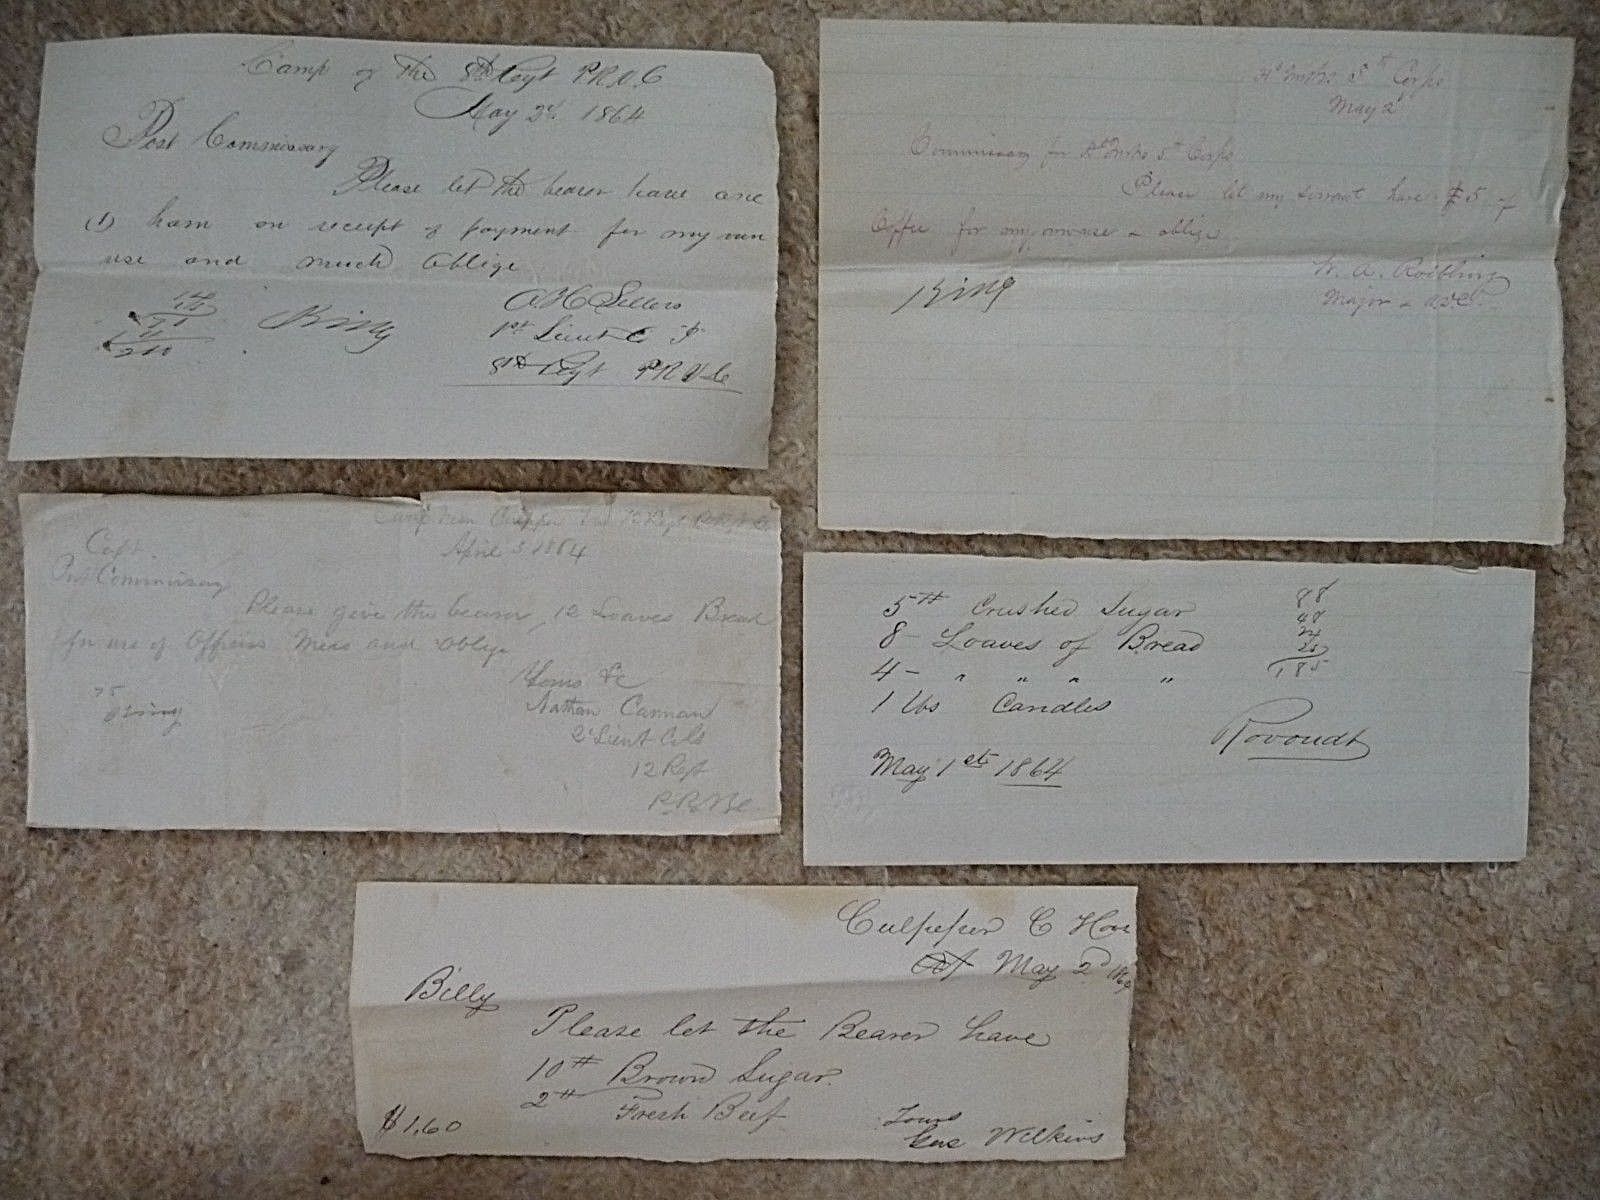 Camp of the 8th Regt P.R.V.C
May 2d 1864
Post Commissary
Please let the bearer have one
(1) ham on receipt of payment for my own
use and much oblige
A H Sellers
1st Lieut Co F
8th Regt P R V C
King
Hd Qurs 5th Corps
May 2
Commissary for Hd Qurs 5th Corps
Please let my servant have $5 of
Coffee for my use & oblige
W. A. Roebling
Major & ADC
King
Camp near Culpeper 12 Regt
April 3 1864
Capt.
Post Commissary
Please give the bearer, 12 Loaves Bread
for use of Officers Mess and oblige
Yours &c
Nathan Carman
2d Lieut Co
12 Regt
P.R.V.C
75
King
5 # Crushed Sugar 88
8 - Loaves of Bread 48
4 - " " " " 24
1 lbs Candles 25
1,85
Rovoudt
May 1st 1864
Culpeper C Hous
May 2d 1864
Billy
Please let the Bearer have
10 # Brown Sugar.
2 # Fresh Beef
$1.60
Yours
Geo Wilkins